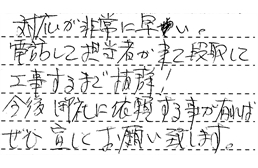 対応が非常に早い。
電話して担当者が来て段取して
工事するまで抜群!
今後 御社に依頼する事が有れば
ぜひ 宜しくお願い致します。